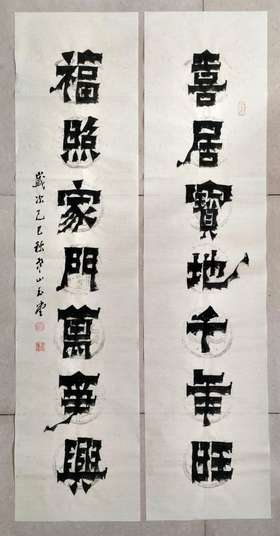 喜居寶地千年旺
福照家門萬事興
歲次乙巳